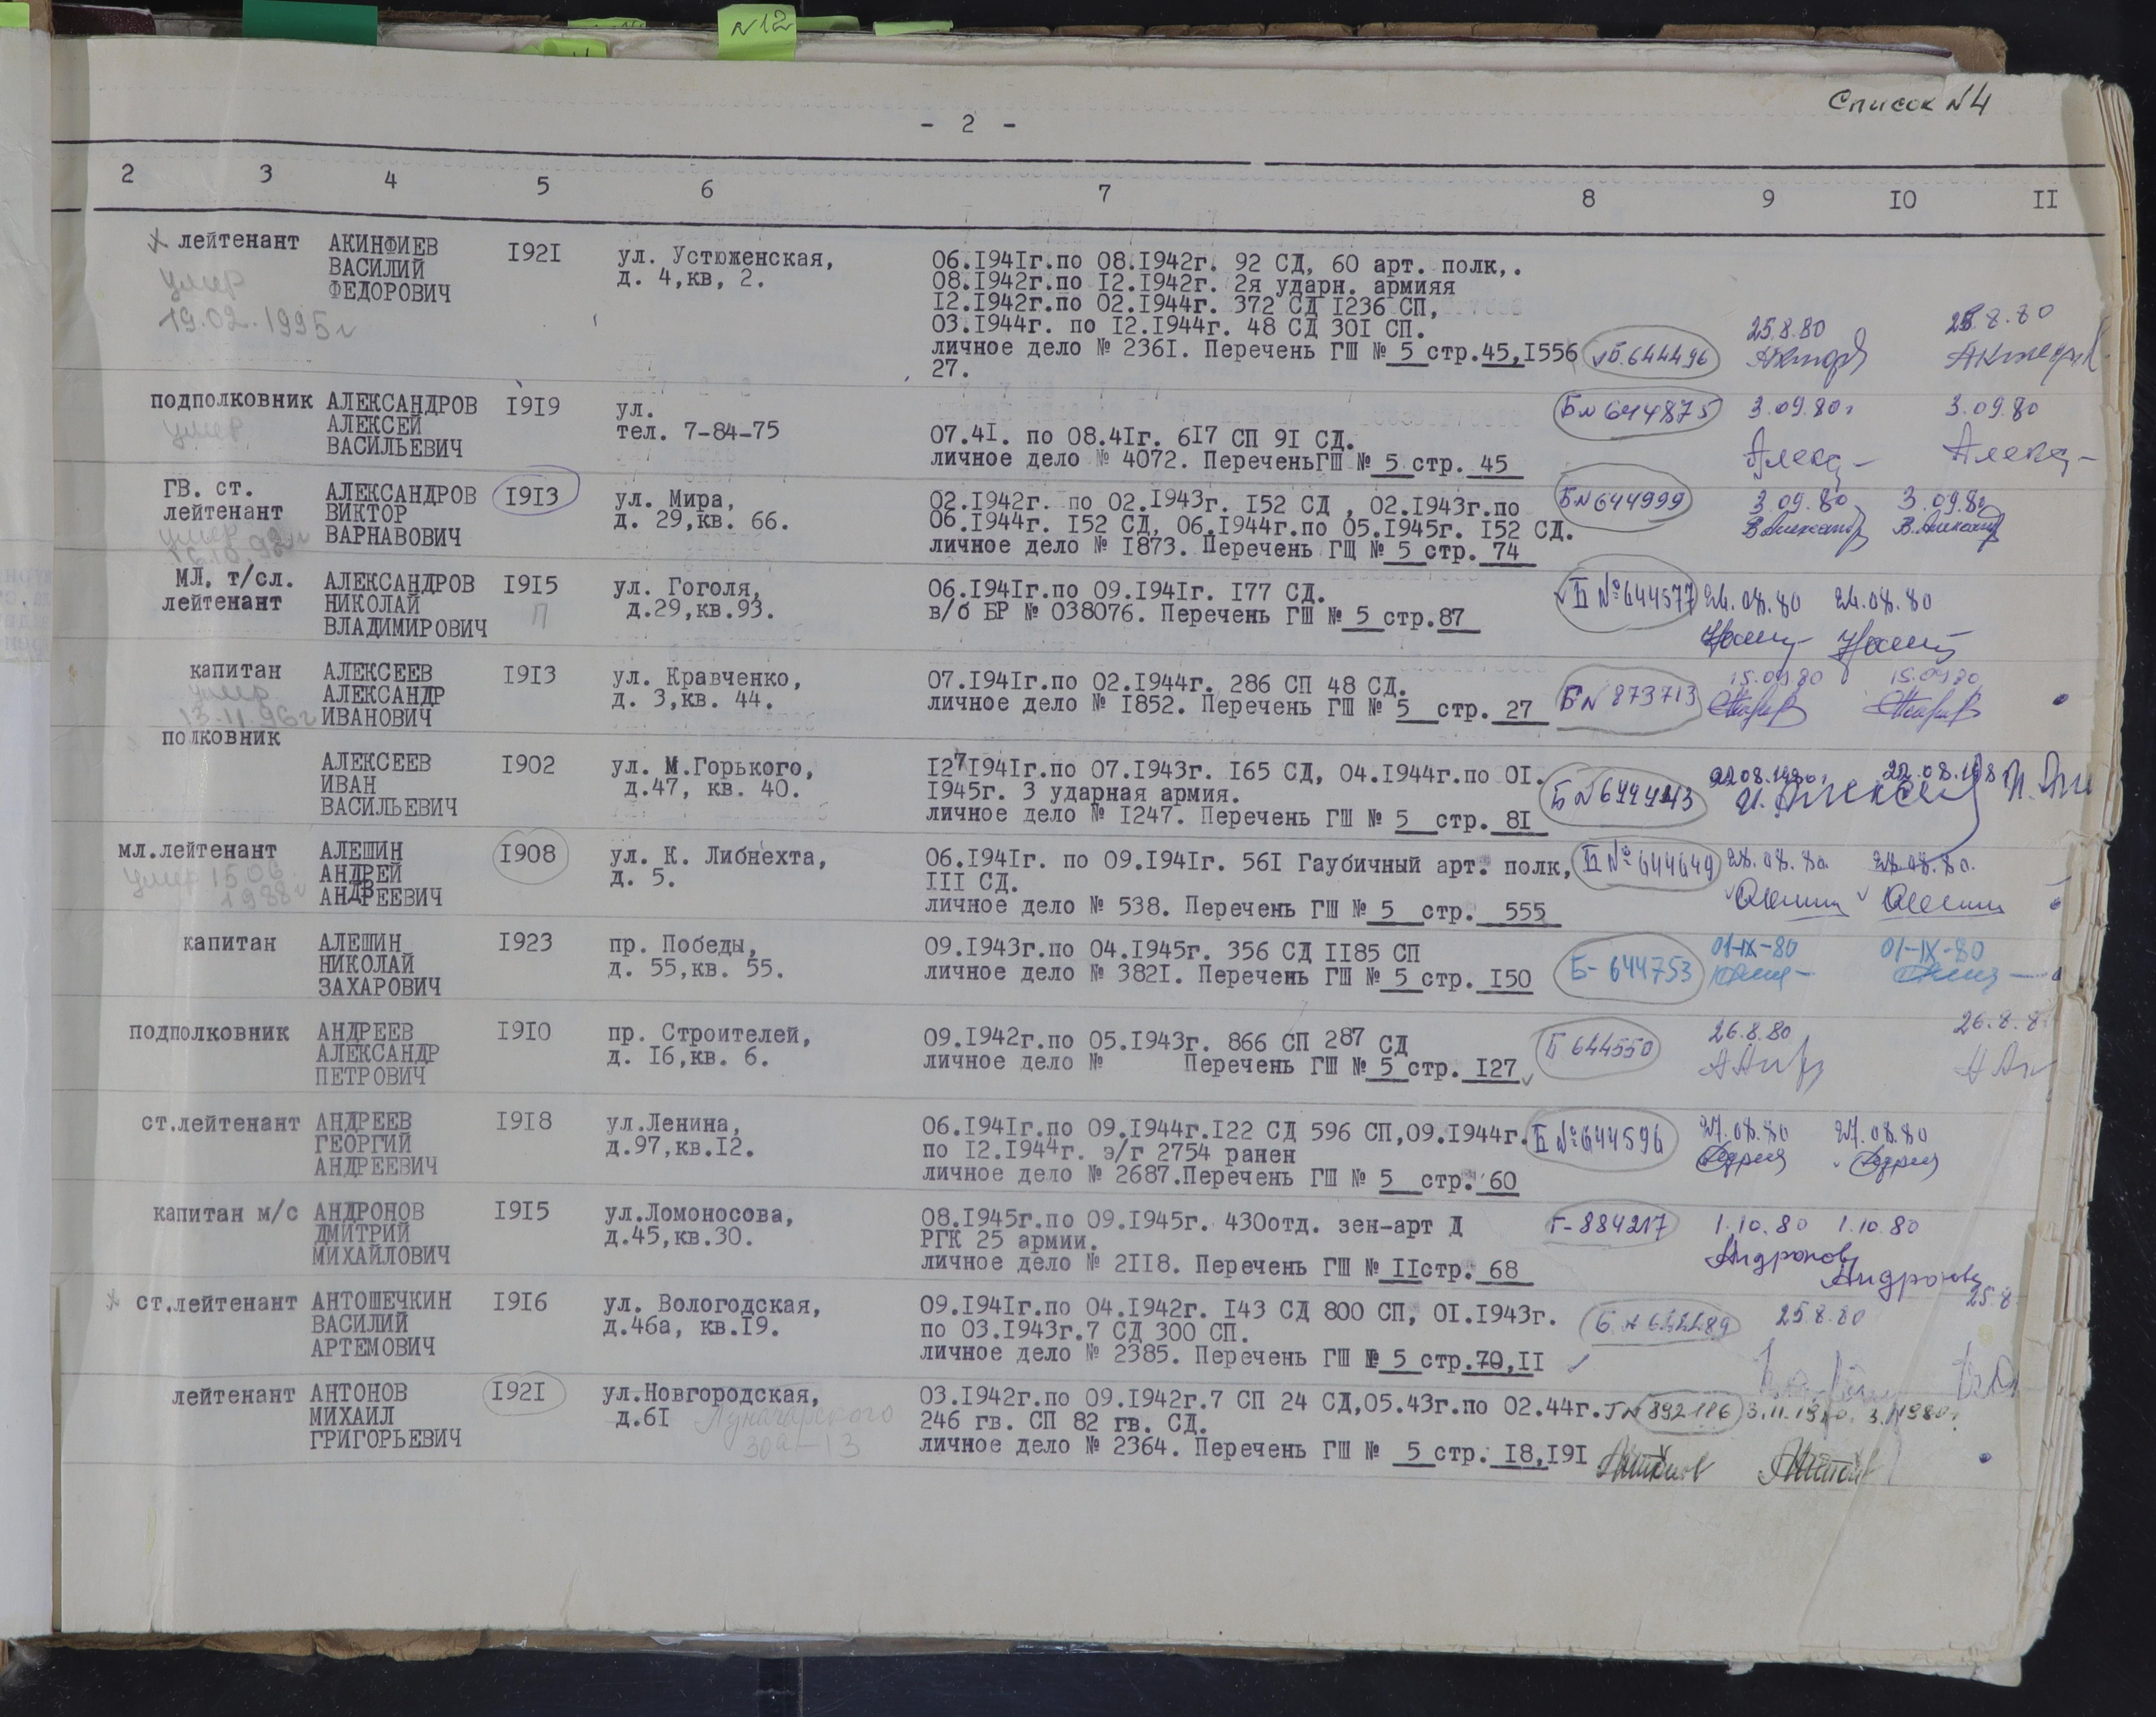 N12
Список N4
- 2 -
2 3 4 5 6 7 8 9 I0 II
лейтенант АКИНФИЕВ I92I ул. Устюженская, 06.I94Iг.по 08.I942г. 92 СД, 60 арт. полк,.
умер ВАСИЛИЙ д. 4,кв, 2. 08.I942г.по I2.I942г. 2я ударн. армияя
19.02.1995г ФЕДОРОВИЧ I2.I942г.по 02.I944г. 372 СД I236 СП,
03.I944г. по I2.I944г. 48 СД 30I СП. 25.8.80 25.8.80
личное дело № 236I. Перечень ГШ № 5 стр.45,I556 Б.644496
27.
подполковник АЛЕКСАНДРОВ I9I9 ул. БN 644875 3.09.80г 3.09.80
умер АЛЕКСЕЙ тел. 7-84-75 07.4I. по 08.4Iг. 6I7 СП 9I СД.
ВАСИЛЬЕВИЧ личное дело № 4072. ПереченьГШ № 5 стр. 45 Алекс Алекс
ГВ. ст. АЛЕКСАНДРОВ I9I3 ул. Мира, 02.I942г. по 02.I943г. I52 СД , 02.I943г.по БN 644999 3.09.80 3.09.80
лейтенант ВИКТОР д. 29,кв. 66. 06.I944г. I52 СД, 06.I944г.по 05.I945г. I52 СД.
умер ВАРНАВОВИЧ личное дело № I873. Перечень ГЩ № 5 стр. 74
16.10.92г
МЛ. т/сл. АЛЕКСАНДРОВ I9I5 ул. Гоголя, 06.I94Iг.по 09.I94Iг. I77 СД. Б №644577 26.08.80 26.08.80
лейтенант НИКОЛАЙ П д.29,кв.93. в/б БР № 038076. Перечень ГШ № 5 стр.87
ВЛАДИМИРОВИЧ
капитан АЛЕКСЕЕВ I9I3 ул. Кравченко, 07.I94Iг.по 02.I944г. 286 СП 48 СД. БN 873713 15.09.80 15.09.80
умер АЛЕКСАНДР д. 3,кв. 44. личное дело № I852. Перечень ГШ № 5 стр. 27
13.11.96г ИВАНОВИЧ
полковник
АЛЕКСЕЕВ I902 ул. М.Горького, I27I94Iг.по 07.I943г. I65 СД, 04.I944г.по 0I.
ИВАН д.47, кв. 40. I945г. 3 ударная армия. БN644443 И. Алексеев
ВАСИЛЬЕВИЧ личное дело № I247. Перечень ГШ № 5 стр. 8I
мл.лейтенант АЛЕШИН I908 ул. К. Либнехта, 06.I94Iг. по 09.I94Iг. 56I Гаубичный арт. полк, Б №644649 28.08.80. 28.08.80.
умер 15.06 АНДРЕЙ д. 5. III СД.
1988г АНДРЕЕВИЧ личное дело № 538. Перечень ГШ № 5 стр. 555 Алешин Алешин
капитан АЛЕШИН I923 пр. Победы, 09.I943г.по 04.I945г. 356 СД II85 СП 01-IX-80 01-IX-80
НИКОЛАЙ д. 55,кв. 55. личное дело № 382I. Перечень ГШ № 5 стр. I50 Б-644753
ЗАХАРОВИЧ
подполковник АНДРЕЕВ I9I0 пр. Строителей, 09.I942г.по 05.I943г. 866 СП 287 СД Б 644550 26.8.80 26.8.8
АЛЕКСАНДР д. I6,кв. 6. личное дело № Перечень ГШ № 5 стр. I27
ПЕТРОВИЧ
ст.лейтенант АНДРЕЕВ I9I8 ул.Ленина, 06.I94Iг.по 09.I944г.I22 СД 596 СП,09.I944г. Б №644596 27.08.80 27.08.80
ГЕОРГИЙ д.97,кв.I2. по I2.I944г. э/г 2754 ранен
АНДРЕЕВИЧ личное дело № 2687.Перечень ГШ № 5 стр. 60
капитан м/с АНДРОНОВ I9I5 ул.Ломоносова, 08.I945г.по 09.I945г. 430отд. зен-арт Д Г-884217 1.10.80 1.10.80
ДМИТРИЙ д.45,кв.30. РГК 25 армии. Андронов
МИХАЙЛОВИЧ личное дело № 2II8. Перечень ГШ № IIстр. 68 Андронов
ст.лейтенант АНТОШЕЧКИН I9I6 ул. Вологодская, 09.I94Iг.по 04.I942г. I43 СД 800 СП, 0I.I943г. 25.8.80 25.8
ВАСИЛИЙ д.46а, кв.I9. по 03.I943г.7 СД 300 СП.
АРТЕМОВИЧ личное дело № 2385. Перечень ГШ № 5 стр.70,II
лейтенант АНТОНОВ I92I ул.Новгородская, 03.I942г.по 09.I942г.7 СП 24 СД,05.43г.по 02.44г. ГN 892116 3.11.1980. 3.11.1980г.
МИХАИЛ д.6I Луначарского 246 гв. СП 82 гв. СД.
ГРИГОРЬЕВИЧ 30а-13 личное дело № 2364. Перечень ГШ № 5 стр. I8,I9I Антонов Антонов